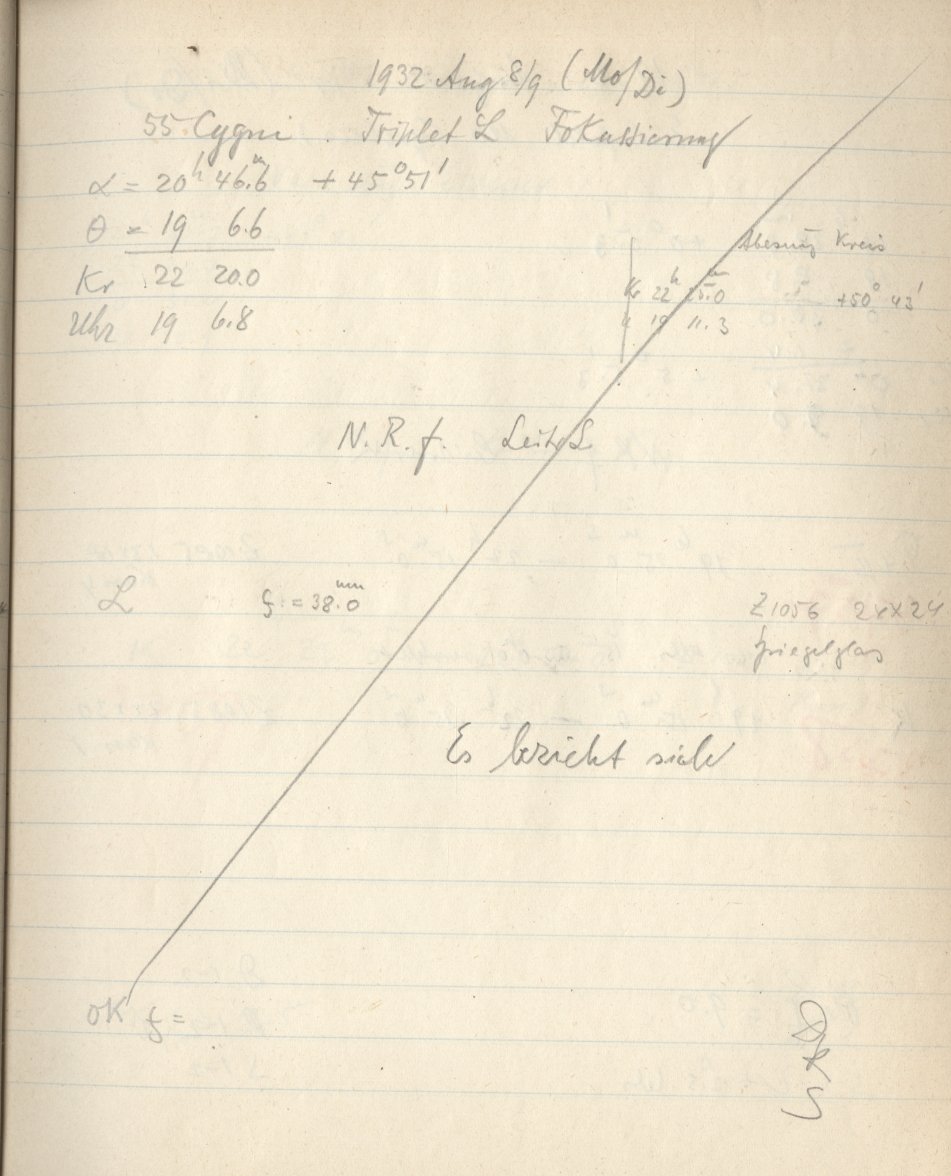 1932 Aug 8/9 (Mo/Di)
55 Cygni. Triplet L Fokussierung
α = 20h 46.m6 + 45°51'
θ = 19 6.6
Kr 22 20.0
Uhr 19 6.8
Ablesung Kreis
Kr 22h 25.m0 +50° 43'
U 19 11.3
N. R. f. Leitz L
L f = 38.0mm
Z1056 24x24
Spiegelglas
Es bezieht sich
OK f =